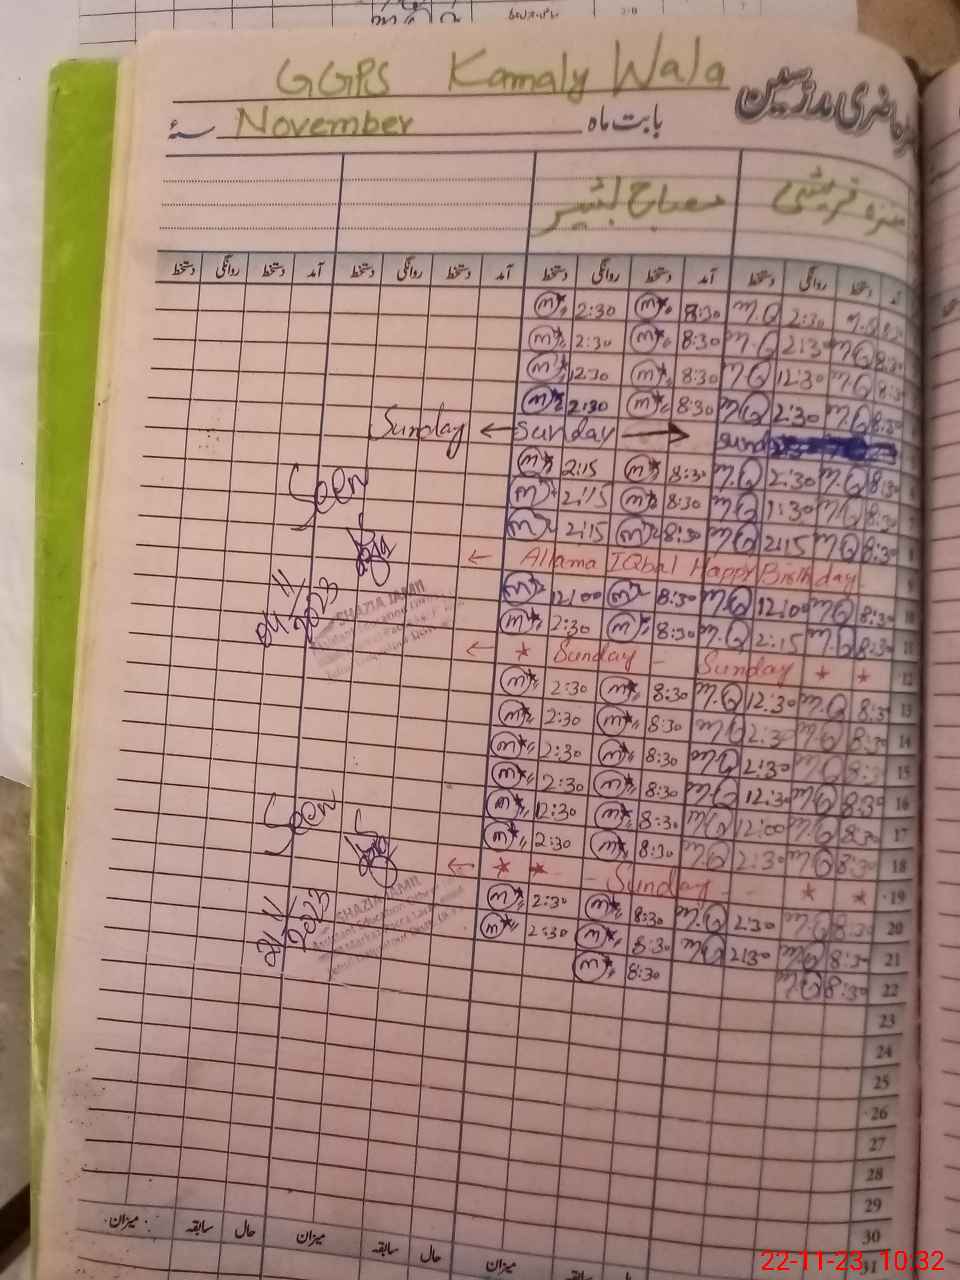 GGPS Kamaly Wala
حاضری مدرسین
بابت ماہ November سنہ
مصباح بشیر
قریشی
آمد دستخط روانگی دستخط آمد دستخط روانگی دستخط آمد دستخط روانگی دستخط آمد دستخط روانگی دستخط
8:30 M.Q 2:30 M.Q 8:30 M 2:30 M
8:30 M.Q 2:30 M.Q 8:30 M 2:30 M
8:30 M.Q 12:30 M.Q 8:30 M 12:30 M
8:30 M.Q 2:30 M.Q 8:30 M 2:30 M
Sunday ← Sunday →
8:30 M.Q 2:30 M.Q 8:30 M 2:15 M
8:30 M.Q 1:30 M.Q 8:30 M 2:15 M
8 8:30 M.Q 2:15 M.Q 8:30 M 2:15 M
9 ← Allama IQbal Happy Birthday
10 8:30 M.Q 12:00 M.Q 8:30 M 12:00 M
11 8:30 M.Q 2:15 M.Q 8:30 M 2:30 M
12 ← * Sunday - Sunday * *
13 8:30 M.Q 12:30 M.Q 8:30 M 2:30 M
14 8:30 M.Q 2:30 M.Q 8:30 M 2:30 M
15 8:30 M.Q 2:30 M.Q 8:30 M 2:30 M
16 8:30 M.Q 12:30 M.Q 8:30 M 2:30 M
17 8:30 M.Q 12:00 M.Q 8:30 M 12:30 M
18 8:30 M.Q 2:30 M.Q 8:30 M 2:30 M
19 ← * * - Sunday * *
20 8:30 M.Q 2:30 M.Q 8:30 M 2:30 M
21 8:30 M.Q 2:30 M.Q 8:30 M 2:30 M
22 8:30 M.Q 8:30 M
23
24
25
26
27
28
29
30
31
Seen
11
2023
SHAZIA JAMIL
Assistant Education Officer
Seen
21 11
2023
SHAZIA JAMIL
Assistant Education Officer
میزان سابقہ حال میزان سابقہ حال میزان سابقہ حال
22-11-23, 10:32